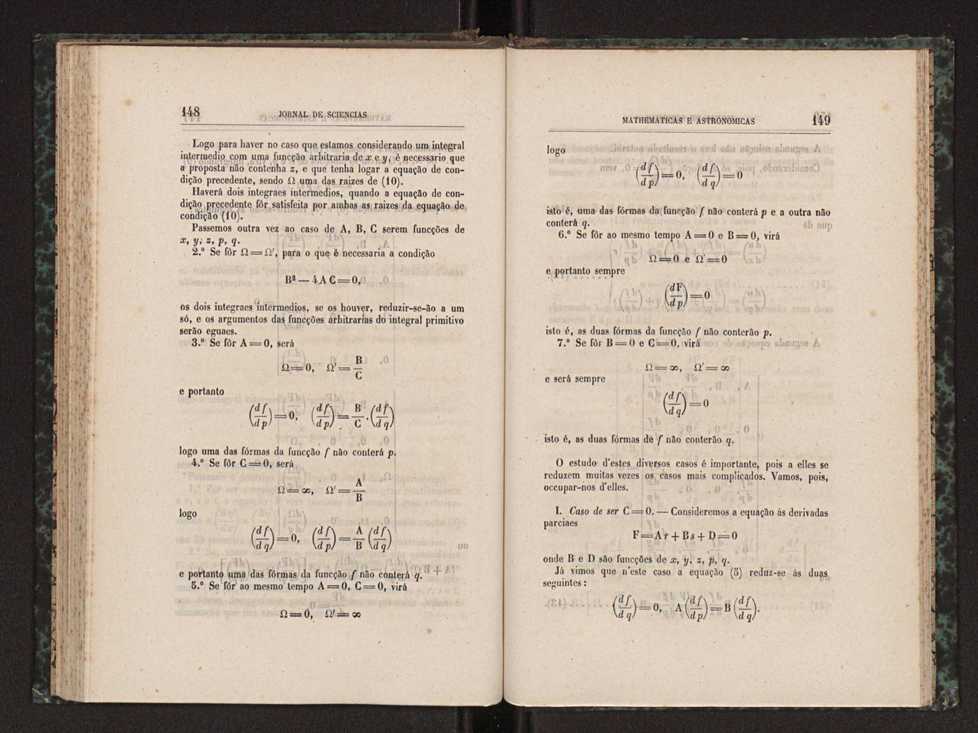 148 JORNAL DE SCIENCIAS
Logo para haver no caso que estamos considerando um integral
intermedio com uma funcção arbitraria de x e y, é necessario que
a proposta não contenha z, e que tenha logar a equação de con-
dição precedente, sendo Ω uma das raizes de (10).
Haverá dois integraes intermedios, quando a equação de con-
dição precedente fôr satisfeita por ambas as raizes da equação de
condição (10).
Passemos outra vez ao caso de A, B, C serem funcções de
x, y, z, p, q.
2.º Se fôr Ω = Ω', para o que é necessaria a condição
B² — 4 A C = 0,
os dois integraes intermedios, se os houver, reduzir-se-ão a um
só, e os argumentos das funcções arbitrarias do integral primitivo
serão eguaes.
3.º Se fôr A = 0, será
Ω = 0, Ω' = B/C
e portanto
(df/dp) = 0, (df/dp) = B/C . (df/dq)
logo uma das fórmas da funcção f não conterá p.
4.º Se fôr C = 0, será
Ω = ∞, Ω' = A/B
logo
(df/dq) = 0, (df/dp) = A/B (df/dq)
e portanto uma das fórmas da funcção f não conterá q.
5.º Se fôr ao mesmo tempo A = 0, C = 0, virá
Ω = 0, Ω' = ∞
MATHEMATICAS E ASTRONOMICAS 149
logo
(df/dp) = 0, (df/dq) = 0
isto é, uma das fórmas da funcção f não conterá p e a outra não
conterá q.
6.º Se fôr ao mesmo tempo A = 0 e B = 0, virá
Ω = 0 e Ω' = 0
e portanto sempre
(dF/dp) = 0
isto é, as duas fórmas da funcção f não conterão p.
7.º Se fôr B = 0 e C = 0, virá
Ω = ∞, Ω' = ∞
e será sempre
(df/dq) = 0
isto é, as duas fórmas de f não conterão q.
O estudo d'estes diversos casos é importante, pois a elles se
reduzem muitas vezes os casos mais complicados. Vamos, pois,
occupar-nos d'elles.
I. Caso de ser C = 0. — Consideremos a equação ás derivadas
parciaes
F = A r + B s + D = 0
onde B e D são funcções de x, y, z, p, q.
Já vimos que n'este caso a equação (5) reduz-se ás duas
seguintes:
(df/dq) = 0, A (df/dp) = B (df/dq).